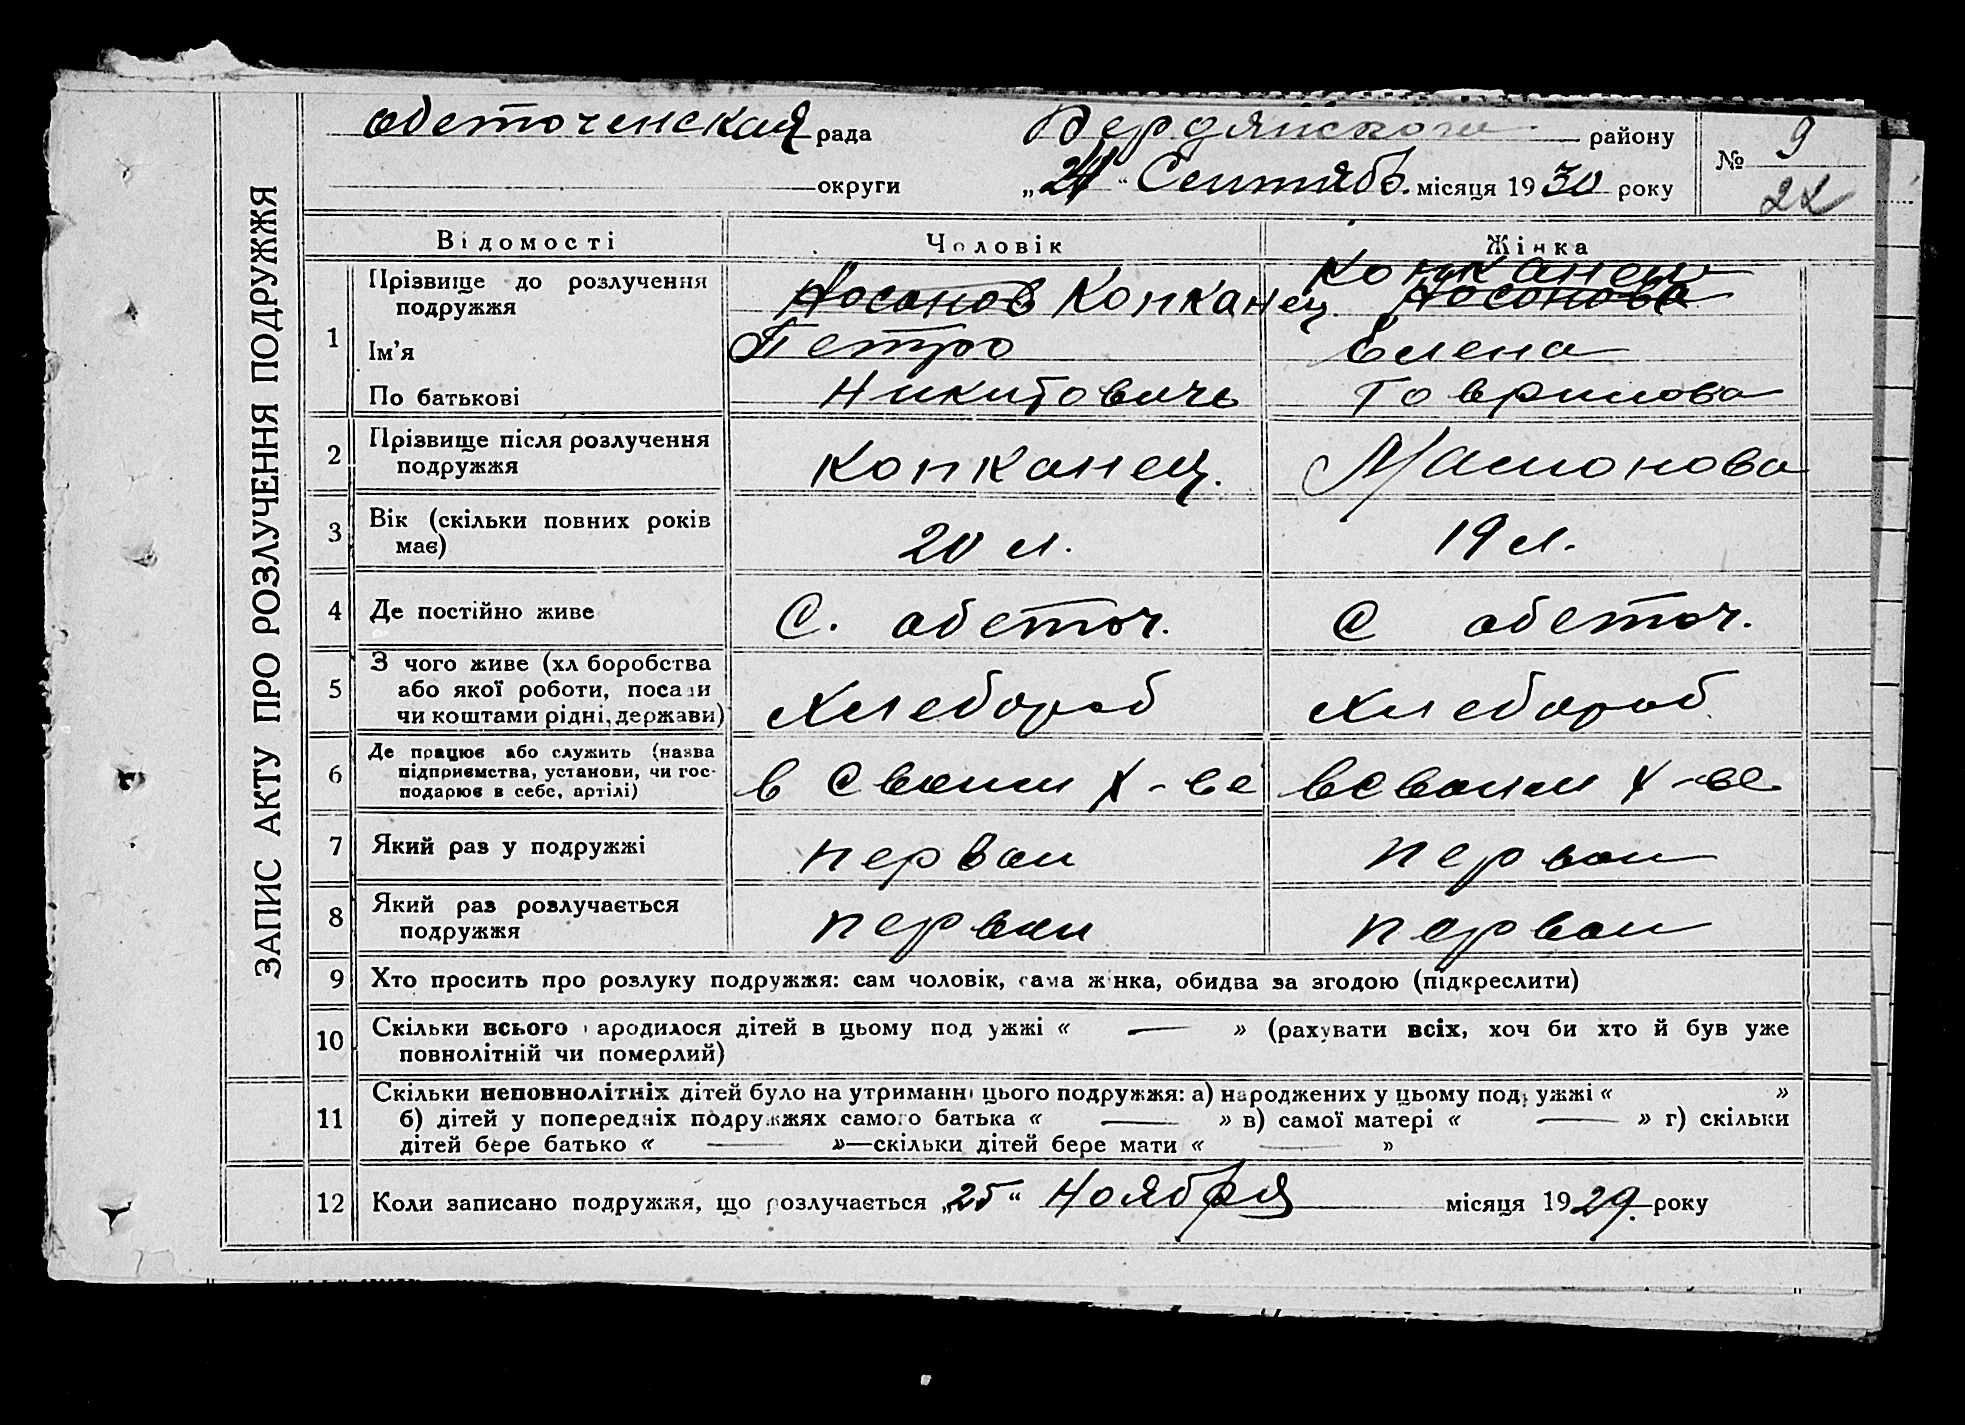 ЗАПИС АКТУ ПРО РОЗЛУЧЕННЯ ПОДРУЖЖЯ
Обеточенская рада Бердянского району № 9
округи „21“ Сентябр. місяця 1930 року 22
Відомості Чоловік Жінка
1 Прізвище до розлучення подружжя Носонов Копканец. Копканец Носонова
Ім’я Петро Елена
По батькові Никитовичь Гаврилова
2 Прізвище після розлучення подружжя Копканец. Мамонова
3 Вік (скільки повних років має) 20 л. 19 л.
4 Де постійно живе С. Обеточ. С Обеточ.
5 З чого живе (хл боробства
або якої роботи, посади
чи коштами рідні, держави) Хлебороб Хлебороб
6 Де працює або служить (назва
підприємства, установи, чи гос-
подарює в себе, артілі) в своим х-ве в своим х-ве
7 Який раз у подружжі первый первый
8 Який раз розлучається подружжя первый первый
9 Хто просить про розлуку подружжя: сам чоловік, сама жінка, обидва за згодою (підкреслити)
10 Скільки всього народилося дітей в цьому подружжі « — » (рахувати всіх, хоч би хто й був уже
повнолітній чи померлий)
11 Скільки неповнолітніх дітей було на утриманні цього подружжя: а) народжених у цьому подружжі « »
б) дітей у попередніх подружжях самого батька « — » в) самої матері « — » г) скільки
дітей бере батько « — »—скільки дітей бере мати « — »
12 Коли записано подружжя, що розлучається „25“ Ноября місяця 1929. року